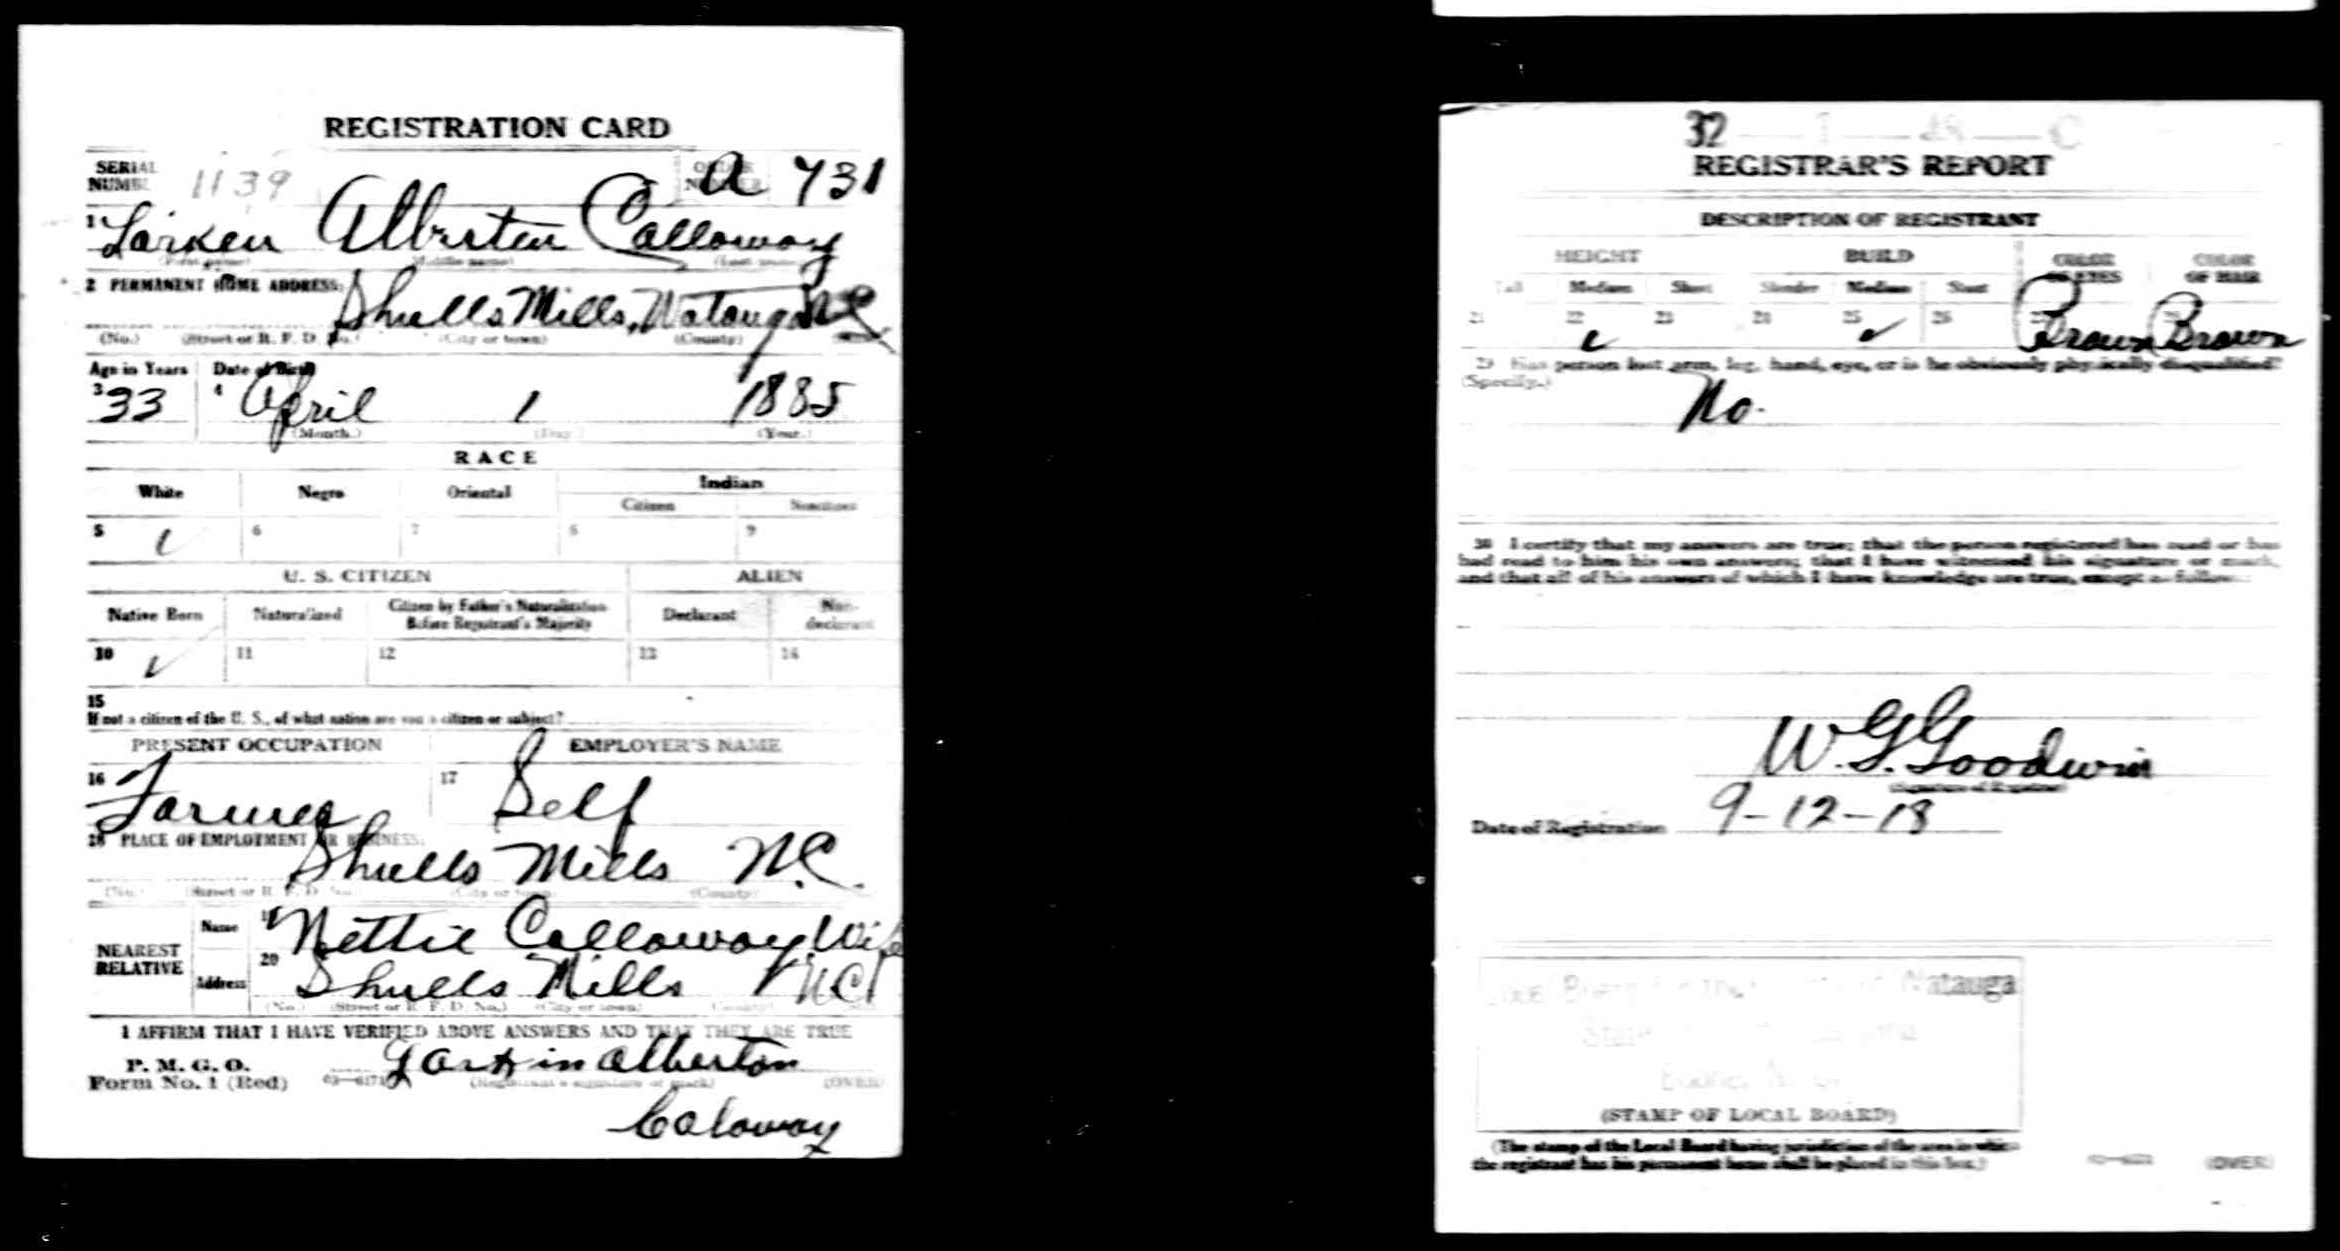 REGISTRATION CARD
SERIAL NUMB 1139 A 731
1 Larken Alberten Calloway
(First name) (Middle name) (Last name)
2 PERMANENT HOME ADDRESS:
Shulls Mills, Watauga NC
(No.) (Street or R. F. D. No.) (City or town) (County)
Age in Years Date of Birth
3 33 4 April 1 1885
(Month.) (Day.) (Year.)
RACE
White Negro Oriental Indian
Citizen Noncitizen
5 ✓ 6 7 8 9
U. S. CITIZEN ALIEN
Native Born Naturalized Citizen by Father's Naturalization Before Registrant's Majority Declarant Non-declarant
10 ✓ 11 12 13 14
15
If not a citizen of the U. S., of what nation are you a citizen or subject?
PRESENT OCCUPATION EMPLOYER'S NAME
16 Farmer 17 Self
18 PLACE OF EMPLOYMENT OR BUSINESS:
Shulls Mills N.C.
(No.) (Street or R. F. D. No.) (City or town) (County)
NEAREST RELATIVE
Name 19 Nettie Calloway Wife
Address 20 Shulls Mills NC
(No.) (Street or R. F. D. No.) (City or town) (County)
I AFFIRM THAT I HAVE VERIFIED ABOVE ANSWERS AND THAT THEY ARE TRUE
P. M. G. O.
Form No. 1 (Red) Larkin Alberton
(Registrant's signature or mark) (OVER)
Caloway
32
REGISTRAR'S REPORT
DESCRIPTION OF REGISTRANT
HEIGHT BUILD COLOR OF EYES COLOR OF HAIR
Tall Medium Short Slender Medium Stout
21 22 ✓ 23 24 25 ✓ 26 27 Brown Brown
29 Has person lost arm, leg, hand, eye, or is he obviously physically disqualified?
(Specify.) No.
30 I certify that my answers are true; that the person registered has read or has
had read to him his own answers; that I have witnessed his signature or mark,
and that all of his answers of which I have knowledge are true, except as follows:
W. G. Goodwin
Date of Registration 9-12-18
Watauga
(STAMP OF LOCAL BOARD)
(The stamp of the Local Board having jurisdiction of the area in which
the registrant has his permanent home shall be placed in this box.)
(OVER)